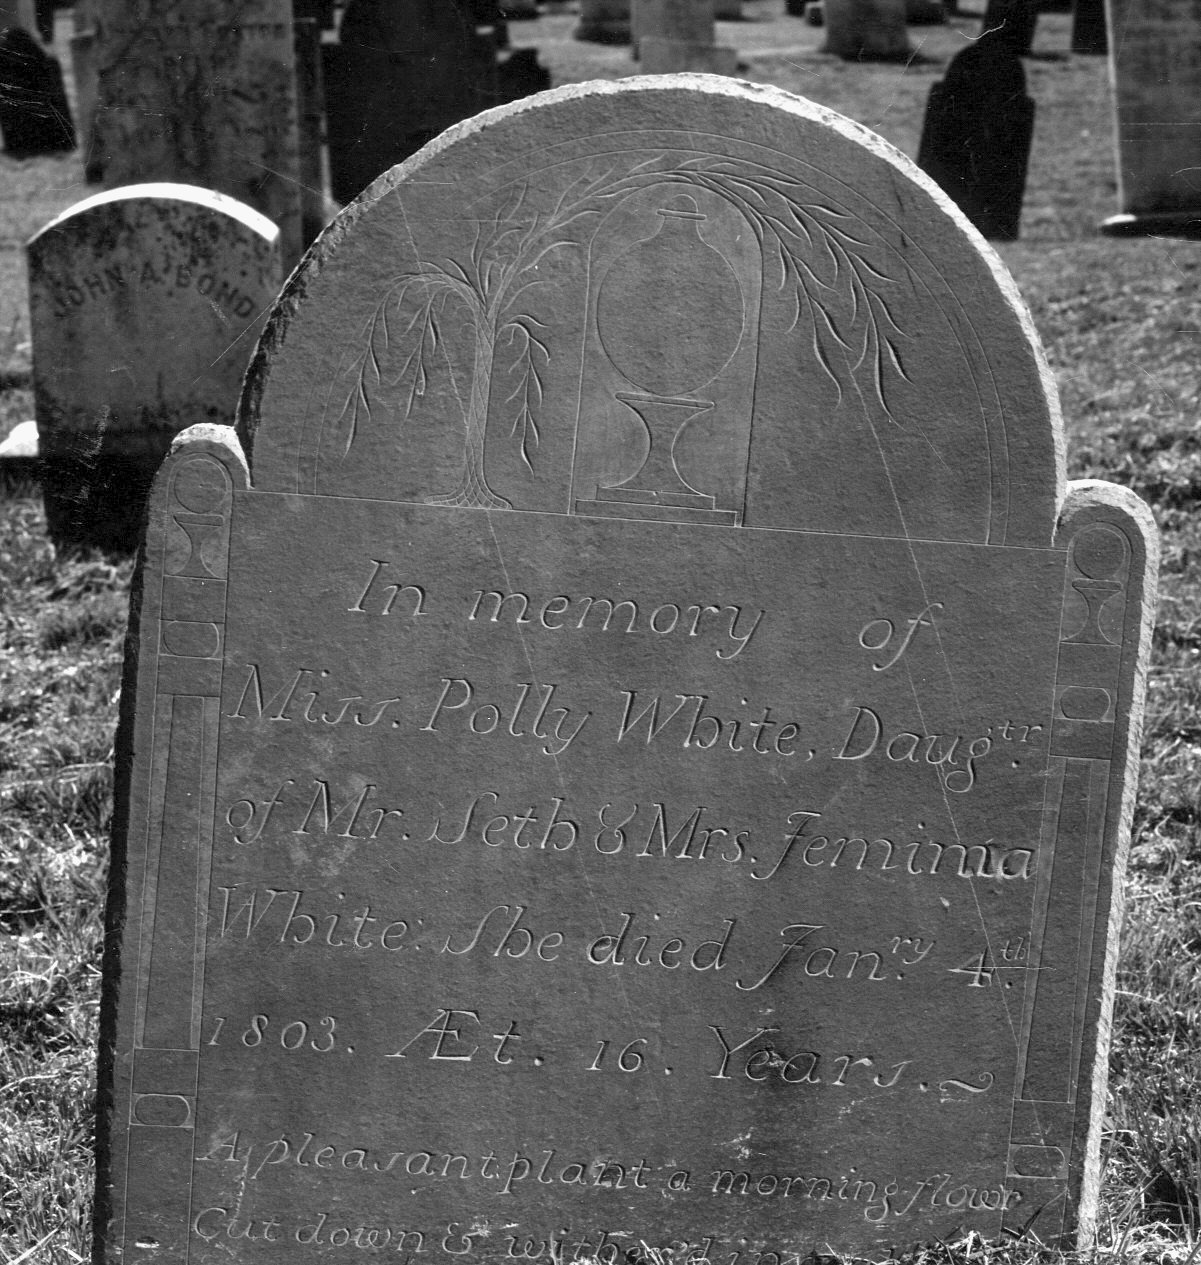 JOHN A. BOND
In memory of
Miss. Polly White, Daugtr.
of Mr. Seth & Mrs. Jemima
White: She died Janry. 4th.
1803. Æt. 16. Years.
A pleasant plant a morning flowr
Cut down & wither'd in